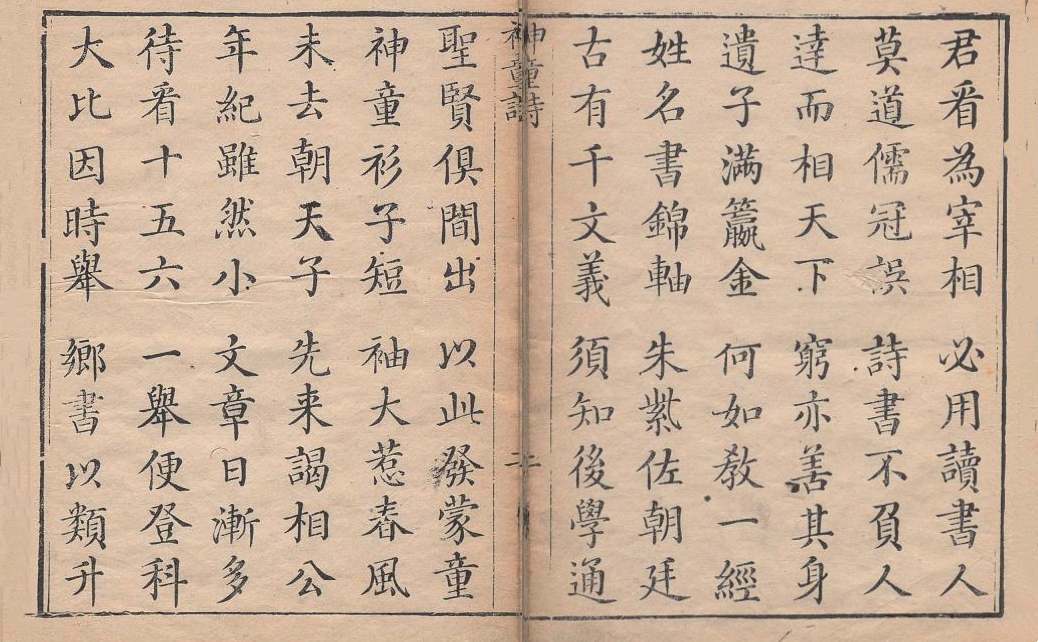 君看為宰相 必用讀書人
莫道儒冠誤 詩書不負人
達而相天下 窮亦善其身
遺子滿籯金 何如教一經
姓名書錦軸 朱紫佐朝廷
古有千文義 須知後學通
神童詩 二
聖賢俱間出 以此發蒙童
神童衫子短 袖大惹春風
未去朝天子 先来謁相公
年紀雖然小 文章日漸多
待看十五六 一舉便登科
大比因時舉 鄉書以類升